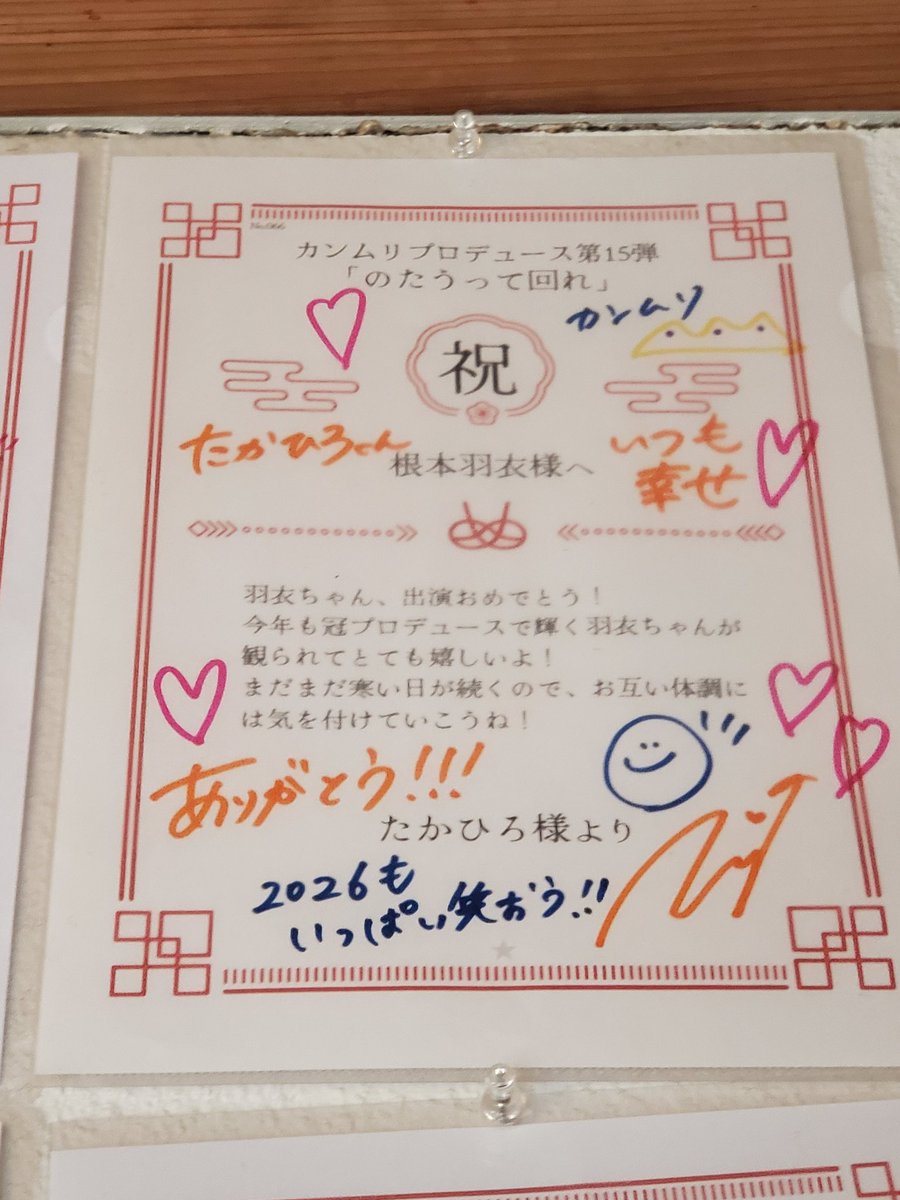 No.066
カンムリプロデュース第15弾
「のたうって回れ」
カンムリ
祝
たかひろくん
根本羽衣様へ
いつも
幸せ
羽衣ちゃん、出演おめでとう!
今年も冠プロデュースで輝く羽衣ちゃんが
観られてとても嬉しいよ!
まだまだ寒い日が続くので、お互い体調に
は気を付けていこうね!
ありがとう!!!
たかひろ様より
2026も
いっぱい笑おう!!